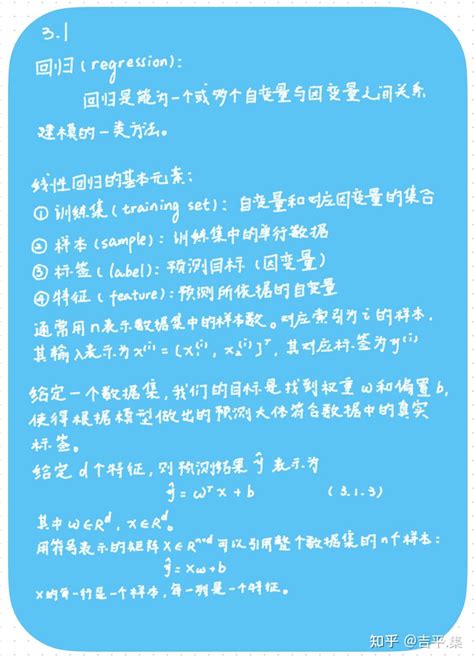 3.1
回归(regression):
回归是能为一个或多个自变量与因变量之间关系
建模的一类方法。
线性回归的基本元素:
① 训练集(training set): 自变量和对应因变量的集合
② 样本(sample): 训练集中的单行数据
③ 标签(label): 预测目标(因变量)
④ 特征(feature): 预测所依据的自变量
通常用n表示数据集中的样本数。对应索引为i的样本,
其输入表示为 x⁽ⁱ⁾ = [x₁⁽ⁱ⁾, x₂⁽ⁱ⁾]ᵀ, 其对应标签为y⁽ⁱ⁾
给定一个数据集,我们的目标是找到权重ω和偏置b,
使得根据模型做出的预测大体符合数据中的真实
标签。
给定d个特征,则预测结果ŷ表示为
ŷ = ωᵀx + b (3.1.3)
其中ω∈Rᵈ, x∈Rᵈ。
用符号表示的矩阵X∈Rⁿˣᵈ可以引用整个数据集的n个样本:
ŷ = Xω+b
X的每一行是一个样本,每一列是一个特征。
知乎 @吉平.集